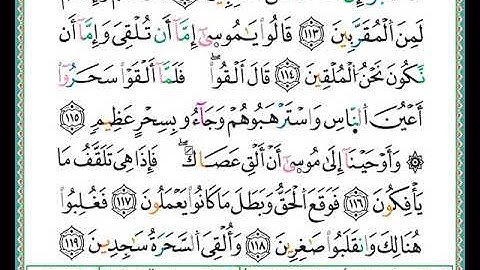 لَمِنَ ٱلْمُقَرَّبِينَ ١١٣ قَالُوا۟ يَـٰمُوسَىٰٓ إِمَّآ أَن تُلْقِىَ وَإِمَّآ أَن
نَّكُونَ نَحْنُ ٱلْمُلْقِينَ ١١٤ قَالَ أَلْقُوا۟ ۖ فَلَمَّآ أَلْقَوْا۟ سَحَرُوٓا۟
أَعْيُنَ ٱلنَّاسِ وَٱسْتَرْهَبُوهُمْ وَجَآءُو بِسِحْرٍ عَظِيمٍ ١١٥
۞ وَأَوْحَيْنَآ إِلَىٰ مُوسَىٰٓ أَنْ أَلْقِ عَصَاكَ ۖ فَإِذَا هِىَ تَلْقَفُ مَا
يَأْفِكُونَ ١١٦ فَوَقَعَ ٱلْحَقُّ وَبَطَلَ مَا كَانُوا۟ يَعْمَلُونَ ١١٧ فَغُلِبُوا۟
هُنَالِكَ وَٱنقَلَبُوا۟ صَـٰغِرِينَ ١١٨ وَأُلْقِىَ ٱلسَّحَرَةُ سَـٰجِدِينَ ١١٩